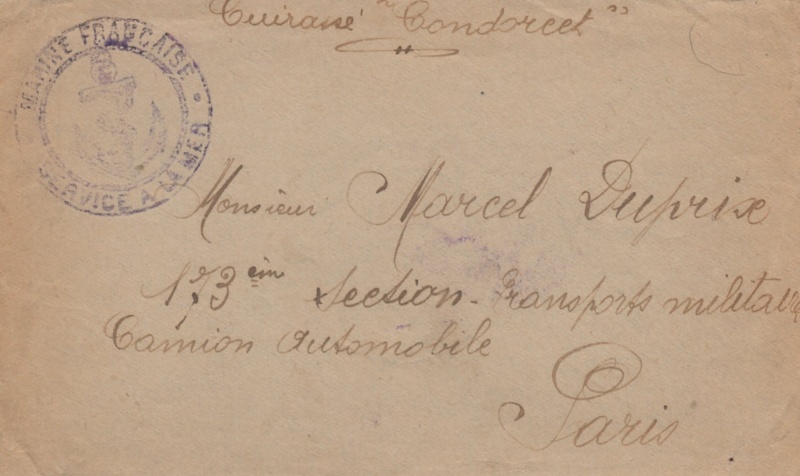 Cuirassé "Condorcet"
MARINE FRANÇAISE
SERVICE A LA MER
Monsieur Marcel Duprix
173èm Section - Transports militaires
Camion automobile
Paris